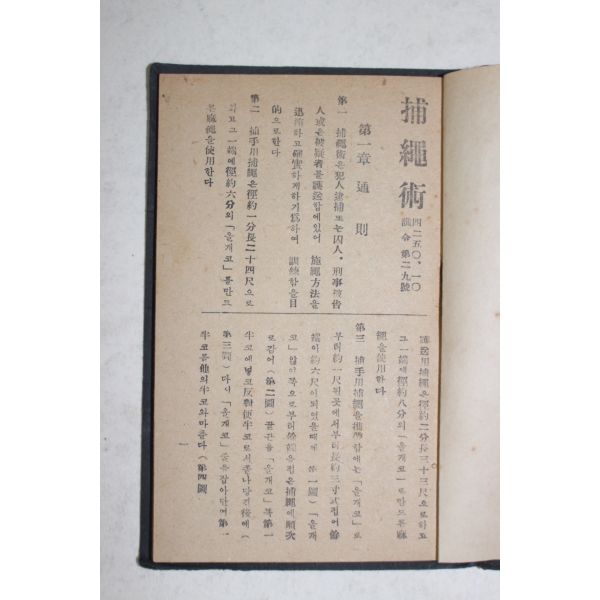 捕繩術
四二五〇、一〇
訓令第二九號
第一章 通則
第一 捕繩術은犯人逮捕또는囚人、刑事被告
人或은被疑者를護送함에있어 施繩方法을
迅速하고確實하게하기爲하여 訓練함을目
的으로한다
第二 捕手用捕繩은徑約一分長二十四尺으로
하고그一端에徑約六分의「올개코」를만드
른麻繩을使用한다
護送用捕繩은徑約二分長三十三尺으로하고
그一端에徑約八分의「올개코」로만드른麻
繩을使用한다
第三 捕手用捕繩을携帶함에는「올개코」로
부터約一尺된곳에서부터長約三寸式접어
접아約六尺이되었을때에 第一圖「올개
코」많이쪽으로부터 捕繩에順次
로감어(第二圖)끝은「올개코」쪽第一
半코에넣고反轉使半코로서 잡나당긴後에(
第三圖)다시「올개코」줄을잡아단여第一
半코를他의半코와마춘다(第四圖)
一